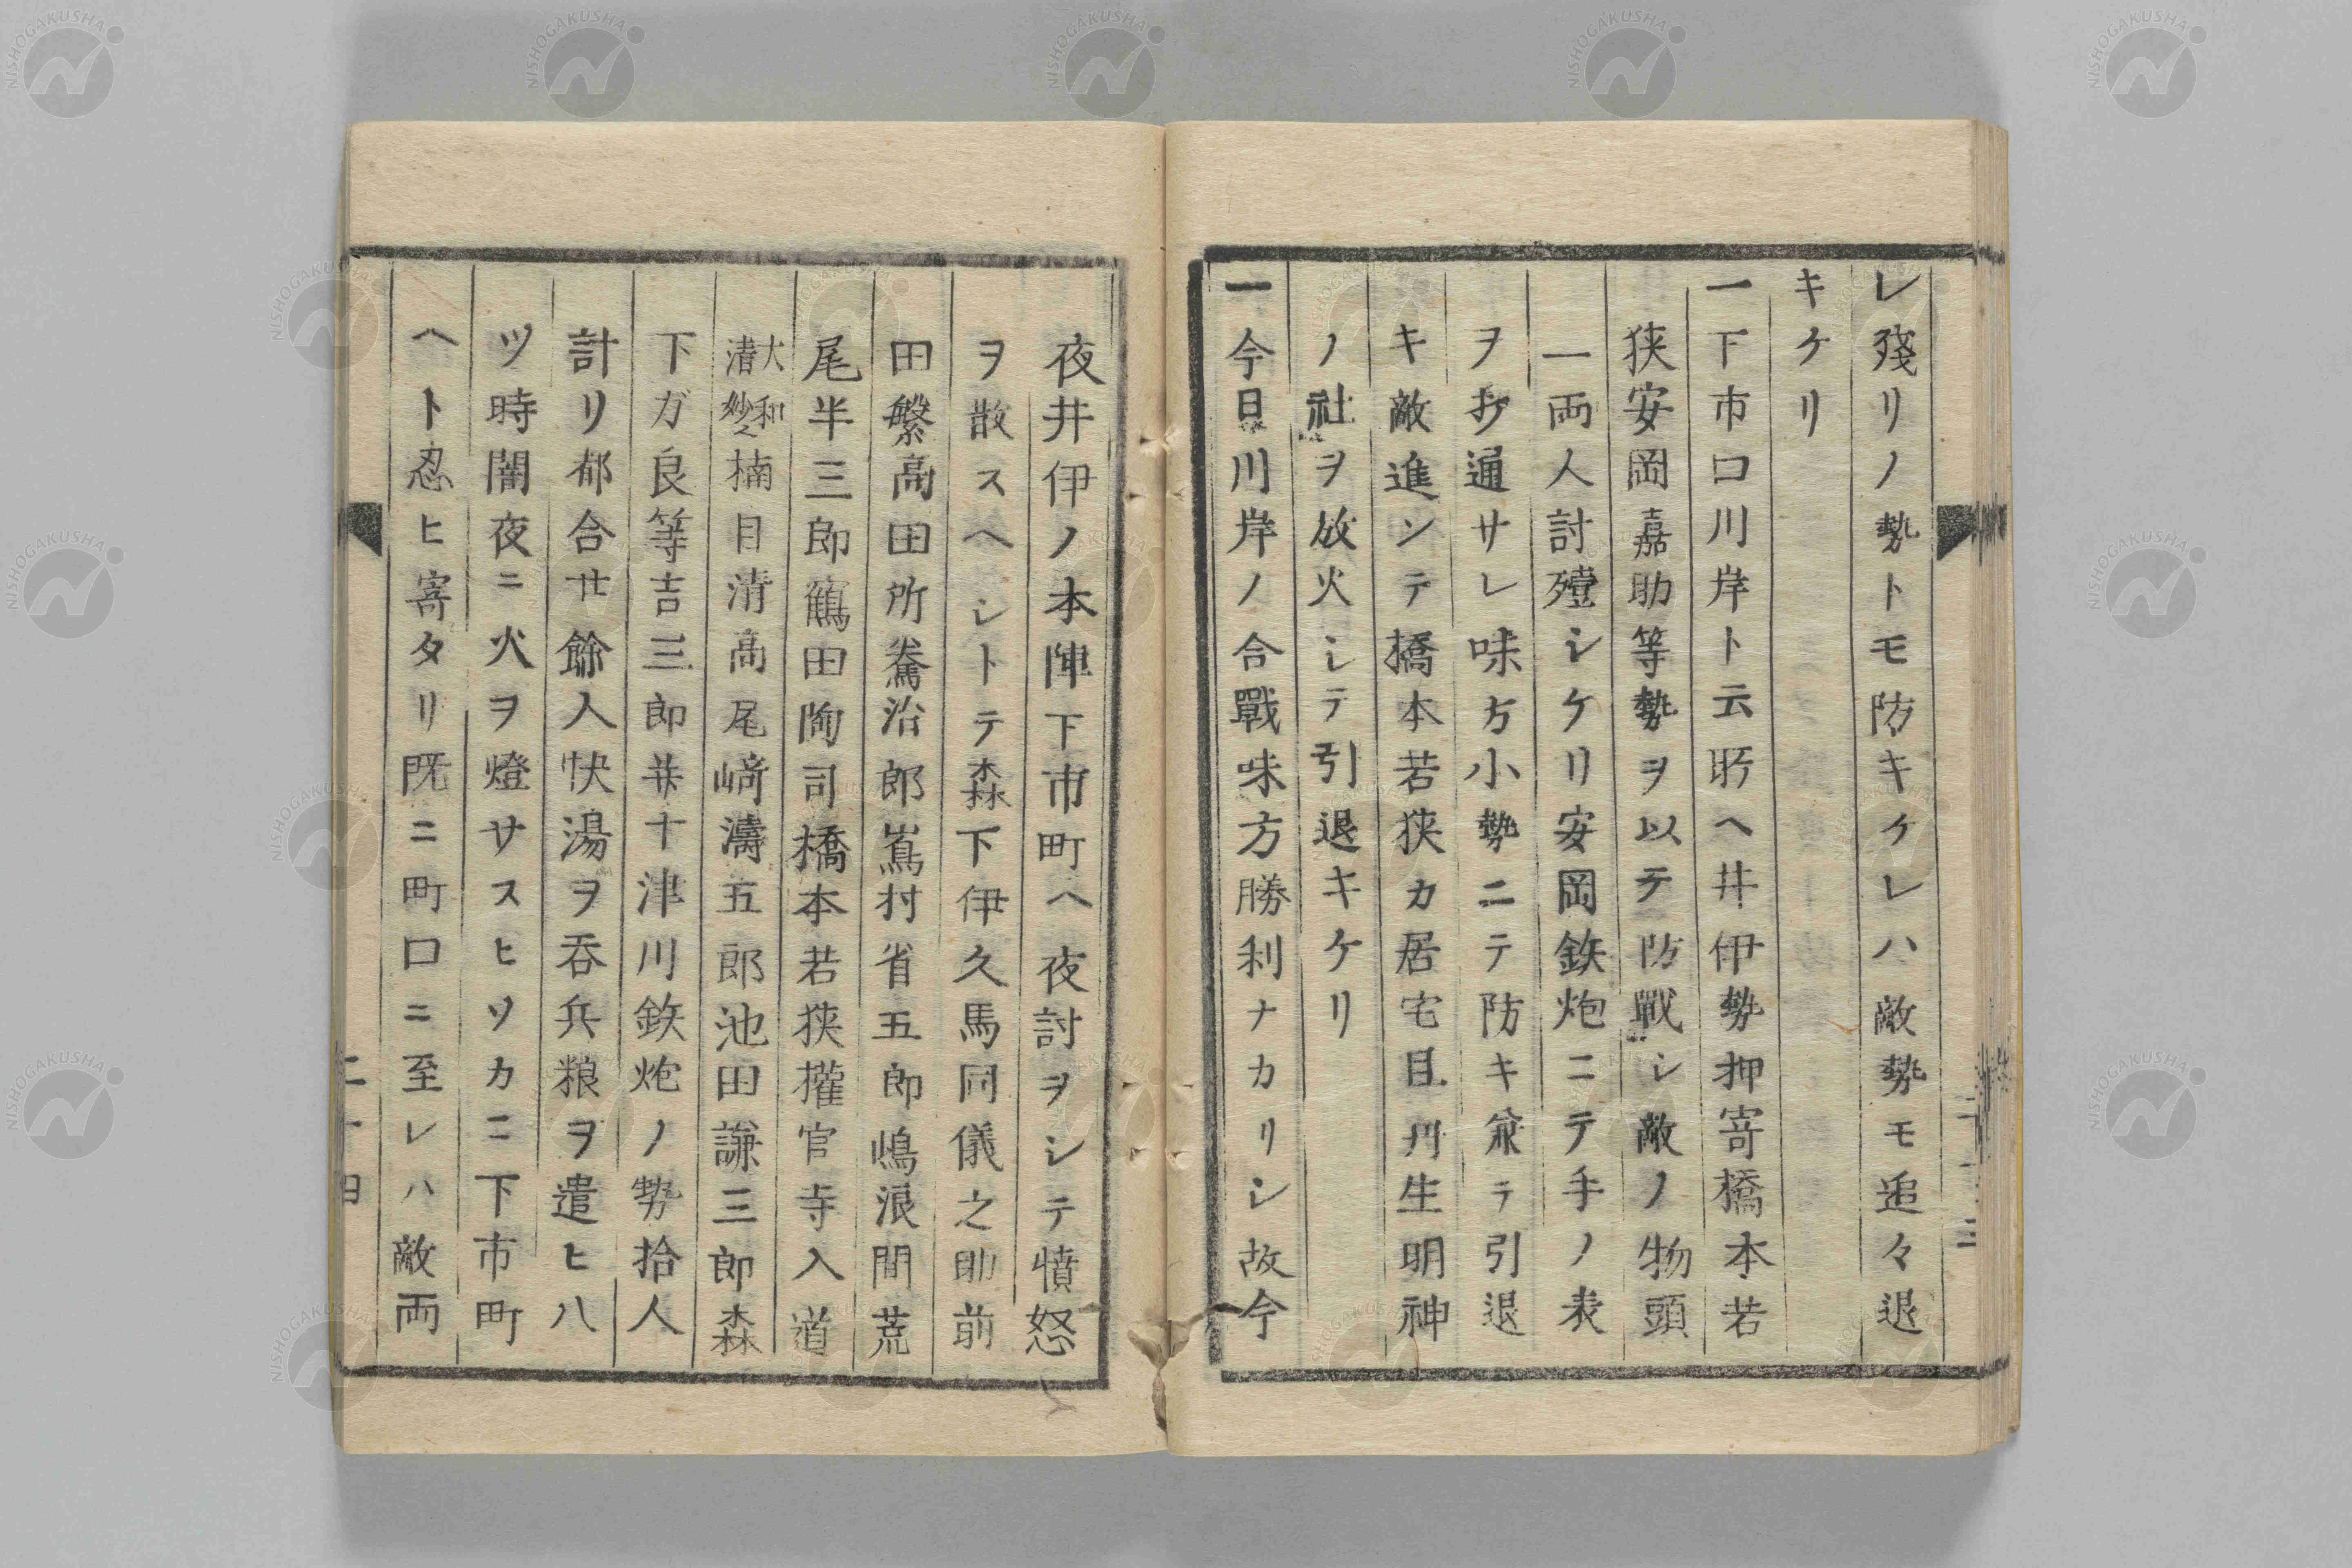 レ殘リノ勢トモ防キケレハ敵勢モ追々退
キケリ
一下市口川岸ト云所ヘ井伊勢押寄橋本若
狭安岡嘉助等勢ヲ以テ防戰シ敵ノ物頭
一両人討殪シケリ安岡鉄炮ニテ手ノ表
ヲ打通サレ味方小勢ニテ防キ兼テ引退
キ敵進ンテ橋本若狭カ居宅且丹生明神
ノ社ヲ放火シテ引退キケリ
一今日川岸ノ合戰味方勝利ナカリシ故今
夜井伊ノ本陣下市町ヘ夜討ヲシテ憤怒
ヲ散スヘシトテ森下伊久馬同儀之助前
田繁高田所騫治郎嶌村省五郎嶋浪間荒
尾半三郎鶴田陶司橋本若狭權官寺入道
大和
楠目清高尾﨑濤五郎池田謙三郎森
下ガ良等吉三郎并十津川鉄炮ノ勢拾人
計リ都合廿餘人快湯ヲ呑兵粮ヲ遣ヒ八
ツ時闇夜ニ火ヲ燈サスヒソカニ下市町
ヘト忍ヒ寄タリ既ニ町口ニ至レハ敵両
二十四
NISHOGAKUSHA